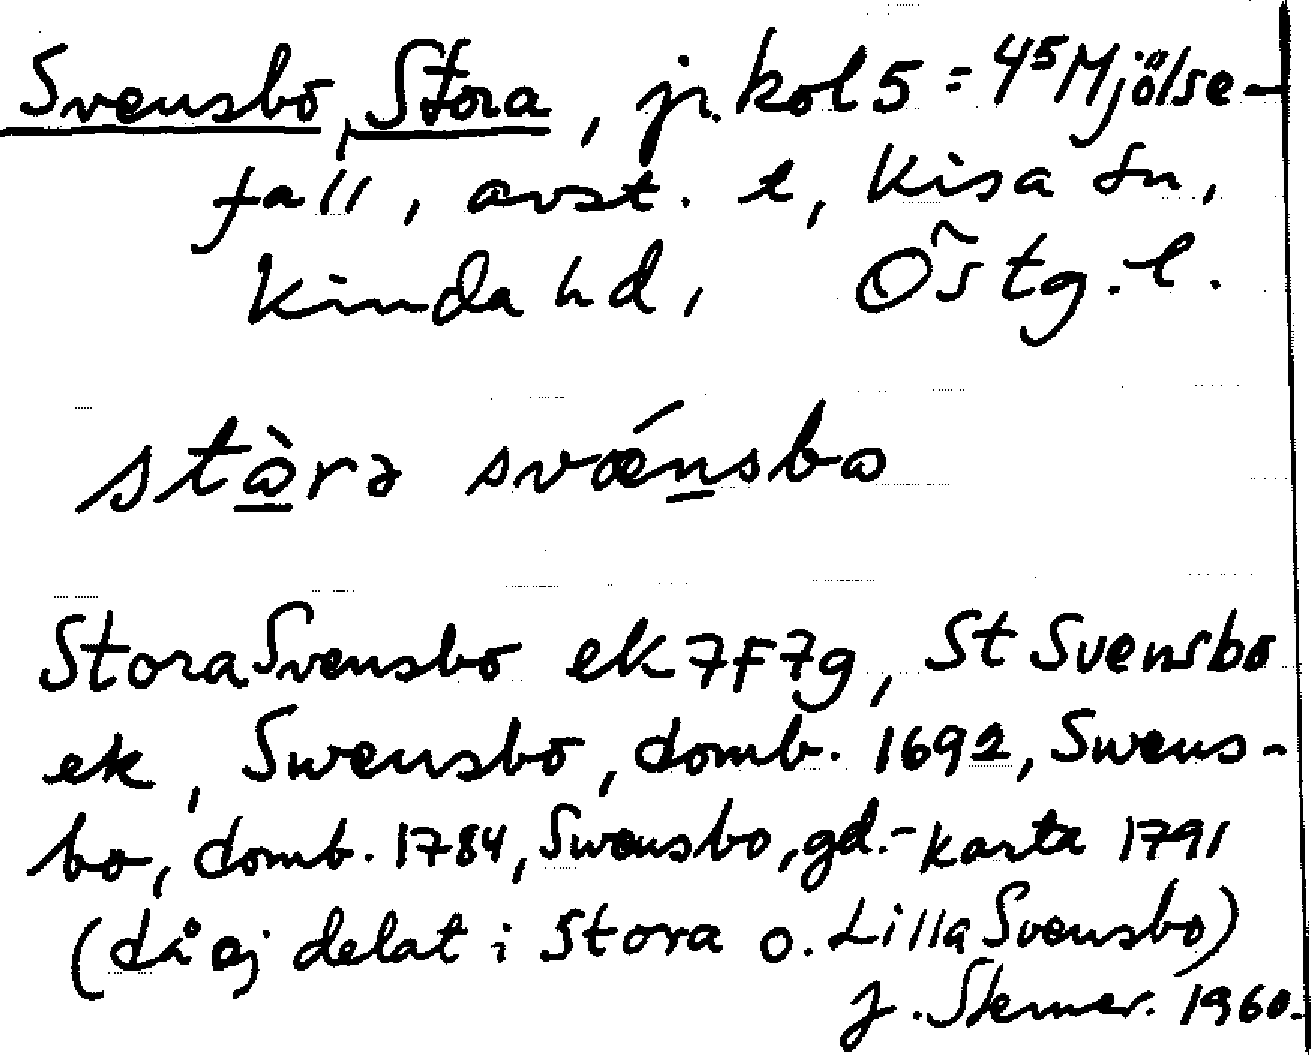 Svensbo, Stora, jr. kol 5 = 45 Mjölse-
fall, avst. l, Kisa sn,
Kinda hd, Östg. l.
stὰrə svǽnsbo
Stora Svensbo ek 7F7g, St Svensbo
ek, Swensbo, domb. 1692, Swens-
bo, domb. 1784, Swensbo, gd.-karta 1791
(då ej delat i Stora o. Lilla Svensbo)
J. 1960.